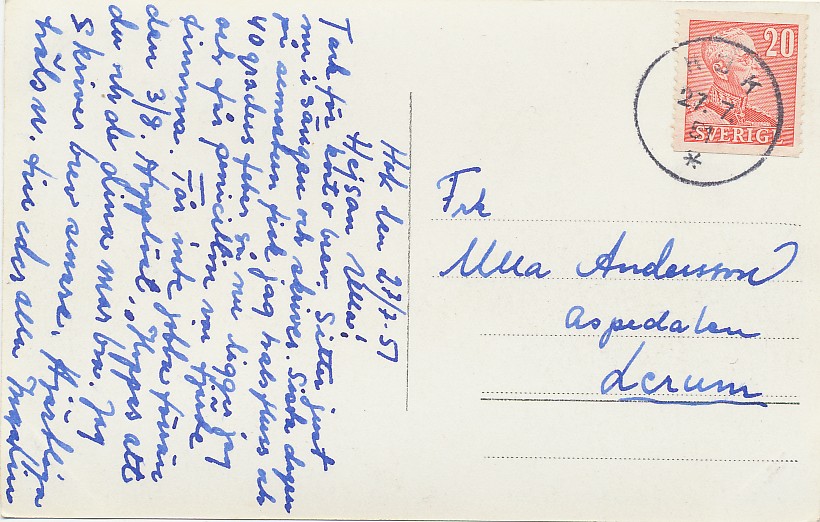 Hok den 27/7-51
Hejsan Ulla!
Tack för kort o brev. Sitter just
nu i sängen och skriver. Sista dagen
på semestern fick jag halsfluss och
40 graders feber så nu ligger jag
och får penicillin var fjärde
timma. Får inte jobba förrän
den 3/8. Hoppas att
du och de dina mår bra. Jag
skriver brev senare. Hjärtliga
hälsn. till eder alla
20
SVERIGE
HOK
27.7
51
*
Frk
Ulla Andersson
Aspedalen
Lerum